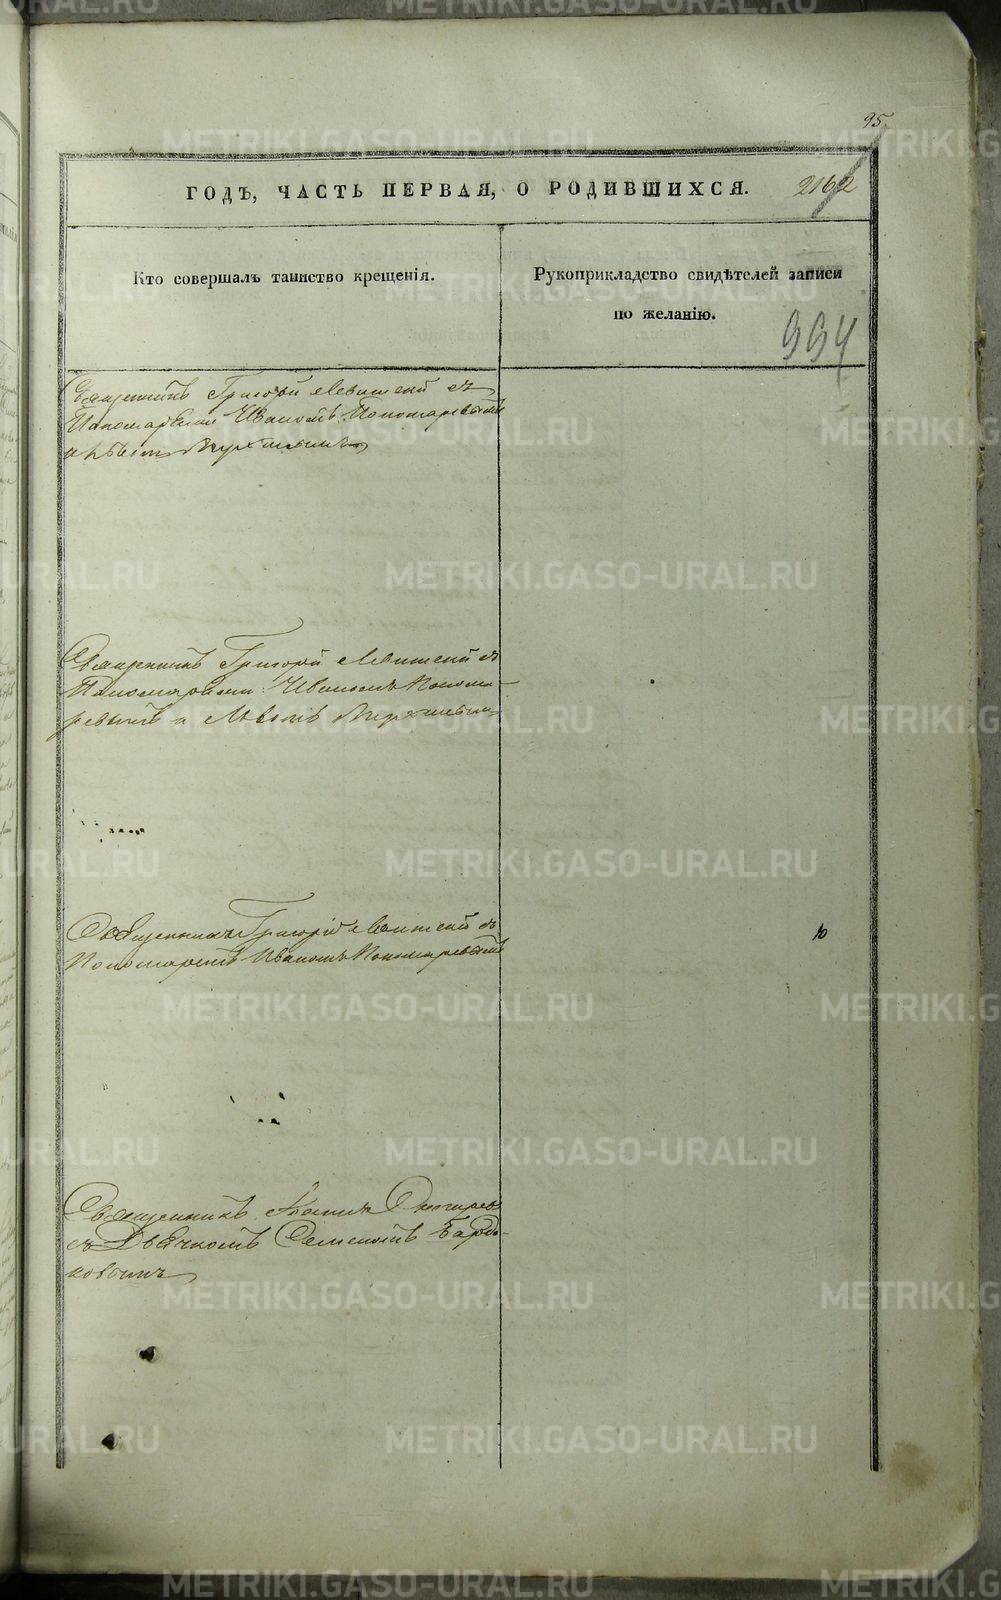 95.
ГОДЪ, ЧАСТЬ ПЕРВАЯ, О РОДИВШИХСЯ.
Кто совершалъ таинство крещенія.
Рукоприкладство свидѣтелей записи
по желанію.
994
Священникъ Григорій Левитскій съ
Пономарями Иваномъ Пономаревымъ
и
Священникъ Григорій Левитскій съ
Пономарями Иваномъ Понома-
ревымъ и
Священникъ Григорій Левитскій съ
Пономаремъ Иваномъ Пономаревымъ
ю
Священникъ
съ Дьячкомъ Семеномъ
METRIKI.GASO-URAL.RU